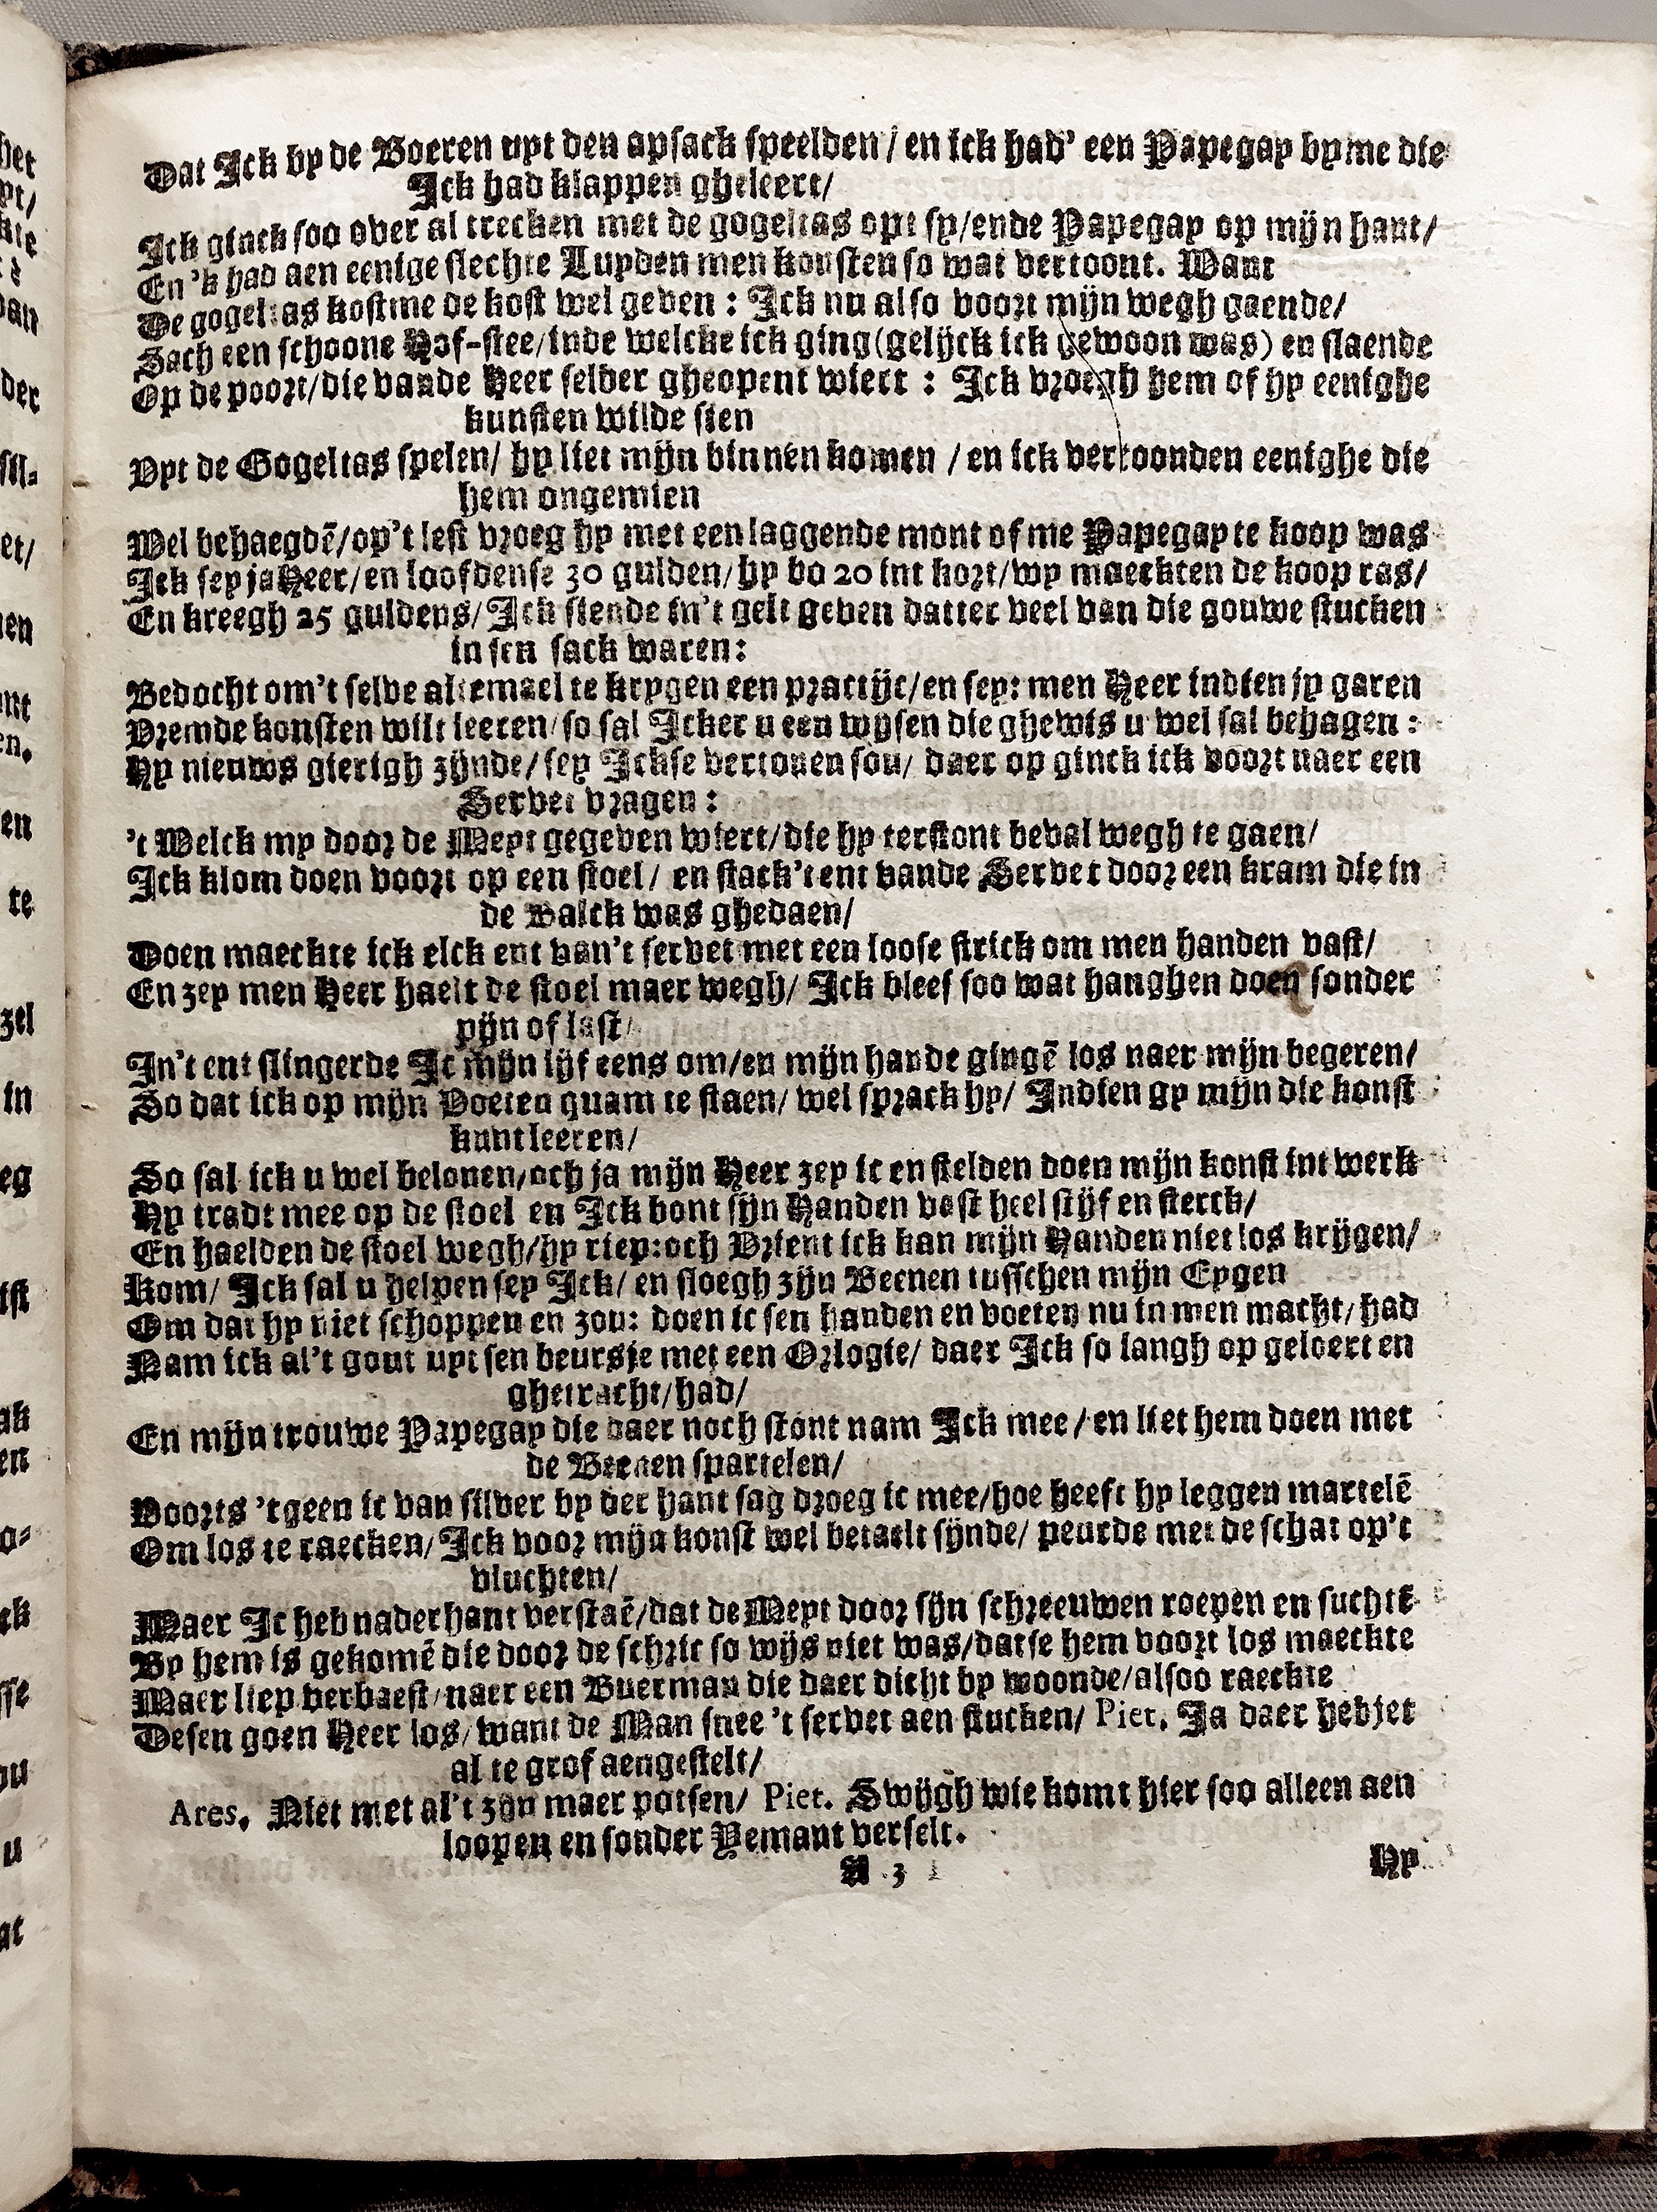 Dat Ick by de Boeren uyt den apsack speelden / en ick had' een Papegay by me die
Ick had klappen gheleert/
Ick ginck soo over al trecken met de gogeltas opt sy/ende Papegay op mijn hant/
En 'k had aen eenige slechte Luyden men konsten so wat vertoont. Want
De gogeltas kostme de kost wel geven : Ick nu also voort mijn wegh gaende/
Sach een schoone Hof-stee/inde welcke ick ging (gelijck ick gewoon was) en slaende
Op de poort/die vande Heer selder gheopent wiert : Ick vroegh hem of hy eenighe
kunsten wilde sien
Uyt de Gogeltas spelen/ hy liet mijn binnen komen / en ick vertoonden eenighe die
hem ongemien
Wel behaegdē/op't lest vroeg hy met een laggende mont of me Papegay te koop was
Ick sey ja Heer/en loofdense 30 gulden/hy bo 20 int kort/wy maeckten de koop ras/
En kreegh 25 guldens/Ick siende in't gelt geven datter veel van die gouwe stucken
in sen sack waren:
Bedocht om't selve altemael te krygen een practijc/en sey: men Heer indien jy garen
Vremde konsten wilt leeren/so sal Icker u een wysen die ghewis u wel sal behagen :
Hy nieuws gierigh zijnde/sey Ickse vertonen sou/ daer op ginck ick voort naer een
Servet vragen :
't Welck my door de Meyt gegeven wiert/die hy terstont beval wegh te gaen/
Ick klom doen voort op een stoel/ en stack't ent vande Servet door een kram die in
de Balck was ghedaen/
Doen maeckte ick elck ent van't servet met een loose strick om men handen vast/
En zey men Heer haelt de stoel maer wegh/ Ick bleef soo wat hanghen doen sonder
pijn of last/
In't ent slingerde Ic mijn lijf eens om/en mijn hande gingē los naer mijn begeren/
So dat ick op mijn Voeten quam te staen/ wel sprack hy/ Indien gy mijn die konst
kunt leeren/
So sal ick u wel belonen/och ja mijn Heer zey ic en stelden doen mijn konst int werk
Hy tradt mee op de stoel en Ick bont sijn Handen vast heel stijf en sterck/
En haelden de stoel wegh/hy riep:och Vrient ick kan mijn Handen niet los krijgen/
Kom/ Ick sal u helpen sey Ick/ en sloegh zijn Beenen tusschen mijn Eygen
Om dat hy niet schoppen en zou: doen ic sen handen en voeten nu in men macht/had
Nam ick al't gout uyt sen beursje met een Orlogie/ daer Ick so langh op geloert en
ghetracht/had/
En mijn trouwe Papegay die daer noch stont nam Ick mee / en liet hem doen met
de Beenen spartelen/
Voorts 'tgeen ic van silver by der hant sag droeg ic mee/hoe heeft hy leggen martelē
Om los te raecken/Ick voor mijn konst wel betaelt sijnde/ peurde met de schat op't
vluchten/
Maer Ic heb naderhant verstaē/dat de Meyt door sijn schreeuwen roepen en suchtē
By hem is gekomē die door de schric so wijs niet was/datse hem voort los maeckte
Maer liep verbaest/naer een Buerman die daer dicht by woonde/alsoo raeckte
Desen goen Heer los/want de Man snee 't servet aen stucken/ Piet. Ja daer hebjet
al te grof aengestelt/
Ares. Niet met al't zijn maer potsen/ Piet. Swijgh wie komt hier soo alleen aen
loopen en sonder Yemant verselt.
A 3
Hy